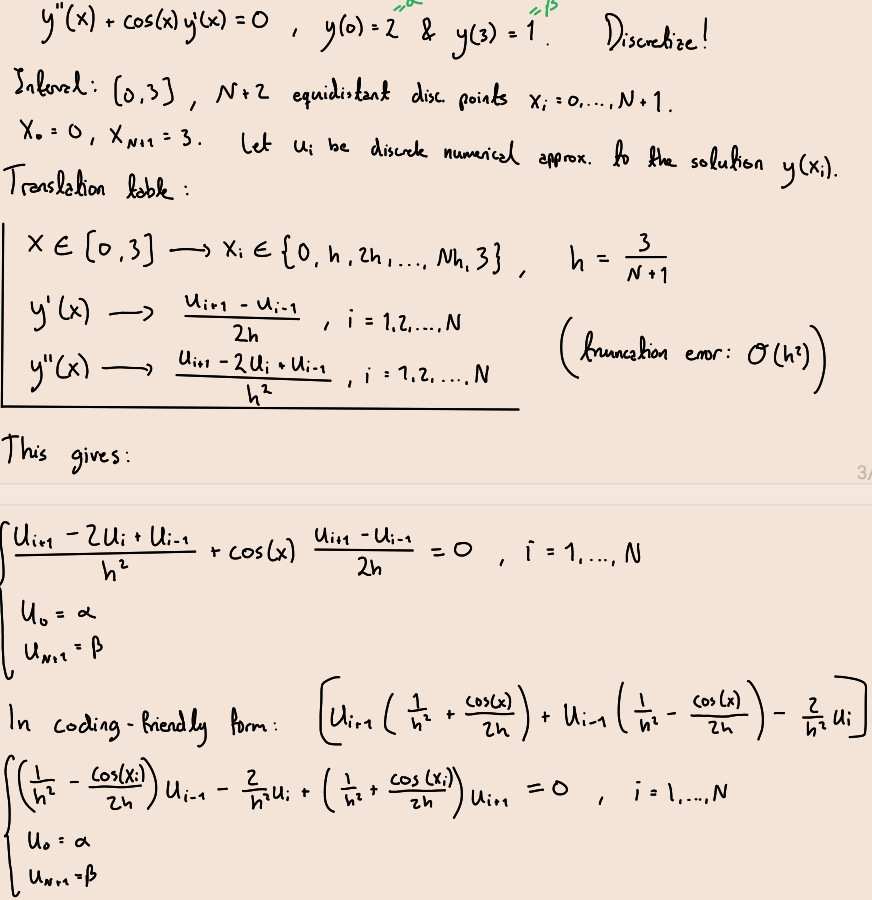 y''(x) + cos(x) y'(x) = 0 , y(0) = 2 =α & y(3) = 1 =β . Discretize!
Interval: [0,3] , N+2 equidistant disc. points x_i = 0,...,N+1.
X_0 = 0 , X_{N+1} = 3. Let u_i be discrete numerical approx. to the solution y(x_i).
Translation table:
X ∈ [0,3] → x_i ∈ {0, h, 2h, ..., Nh, 3} , h = 3/(N+1)
y'(x) → (u_{i+1} - u_{i-1})/(2h) , i = 1,2,...,N
(truncation error: O(h²))
y''(x) → (u_{i+1} - 2u_i + u_{i-1})/h² , i = 1,2,...,N
This gives:
3/
{ (u_{i+1} - 2u_i + u_{i-1})/h² + cos(x) (u_{i+1} - u_{i-1})/(2h) = 0 , i = 1,...,N
u_0 = α
u_{N+1} = β
In coding-friendly form: [u_{i+1} (1/h² + cos(x)/(2h)) + u_{i-1} (1/h² - cos(x)/(2h)) - 2/h² u_i]
{ (1/h² - cos(x_i)/(2h)) u_{i-1} - 2/h² u_i + (1/h² + cos(x_i)/(2h)) u_{i+1} = 0 , i = 1,...,N
u_0 = α
u_{N+1} = β